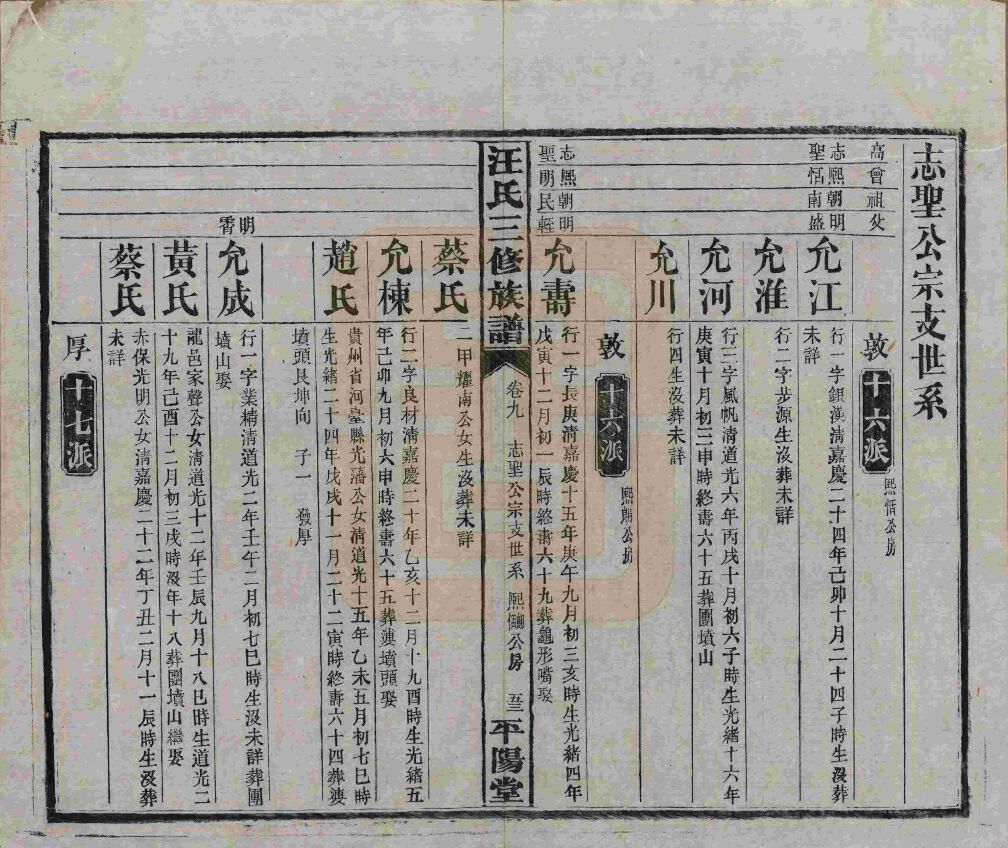 志聖公宗支世系
高曾祖父
敦 十六派 熙恬公房
志熙朝明
聖恬南盛
允江
行一字銀漢清嘉慶二十四年己卯十月二十四子時生沒葬
未詳
允淮
行二字步源生沒葬未詳
允河
行三字風帆清道光六年丙戌十月初六子時生光緒十六年
庚寅十月初三申時終壽六十五葬團墳山
允川
行四生沒葬未詳
敦 十六派 熙朗公房
志熙朝明
聖朗民輕
允壽
行一字長庚清嘉慶十五年庚午九月初三亥時生光緒四年
戊寅十二月初一辰時終壽六十九葬龜形嘴娶
汪氏三修族譜 卷九 志聖公宗支世系 熙恬朗公房 五三 平陽堂
蔡氏
二甲耀南公女生沒葬未詳
允棟
行二字良材清嘉慶二十年乙亥十二月十九酉時生光緒五
年己卯九月初六申時終壽六十五葬漣墳頭娶
趙氏
貴州省河臺縣光藩公女清道光十五年乙未五月初七巳時
生光緒二十四年戊戌十一月二十二寅時終壽六十四葬漣
墳頭艮坤向 子一 發厚
明霄
允成
行一字業精清道光二年壬午二月初七巳時生沒未詳葬團
墳山娶
黃氏
龍邑家聲公女清道光十二年壬辰九月十八巳時生道光二
十九年己酉十二月初三戌時沒年十八葬團墳山繼娶
蔡氏
赤保光明公女清嘉慶二十二年丁丑二月十一辰時生沒葬
未詳
厚 十七派